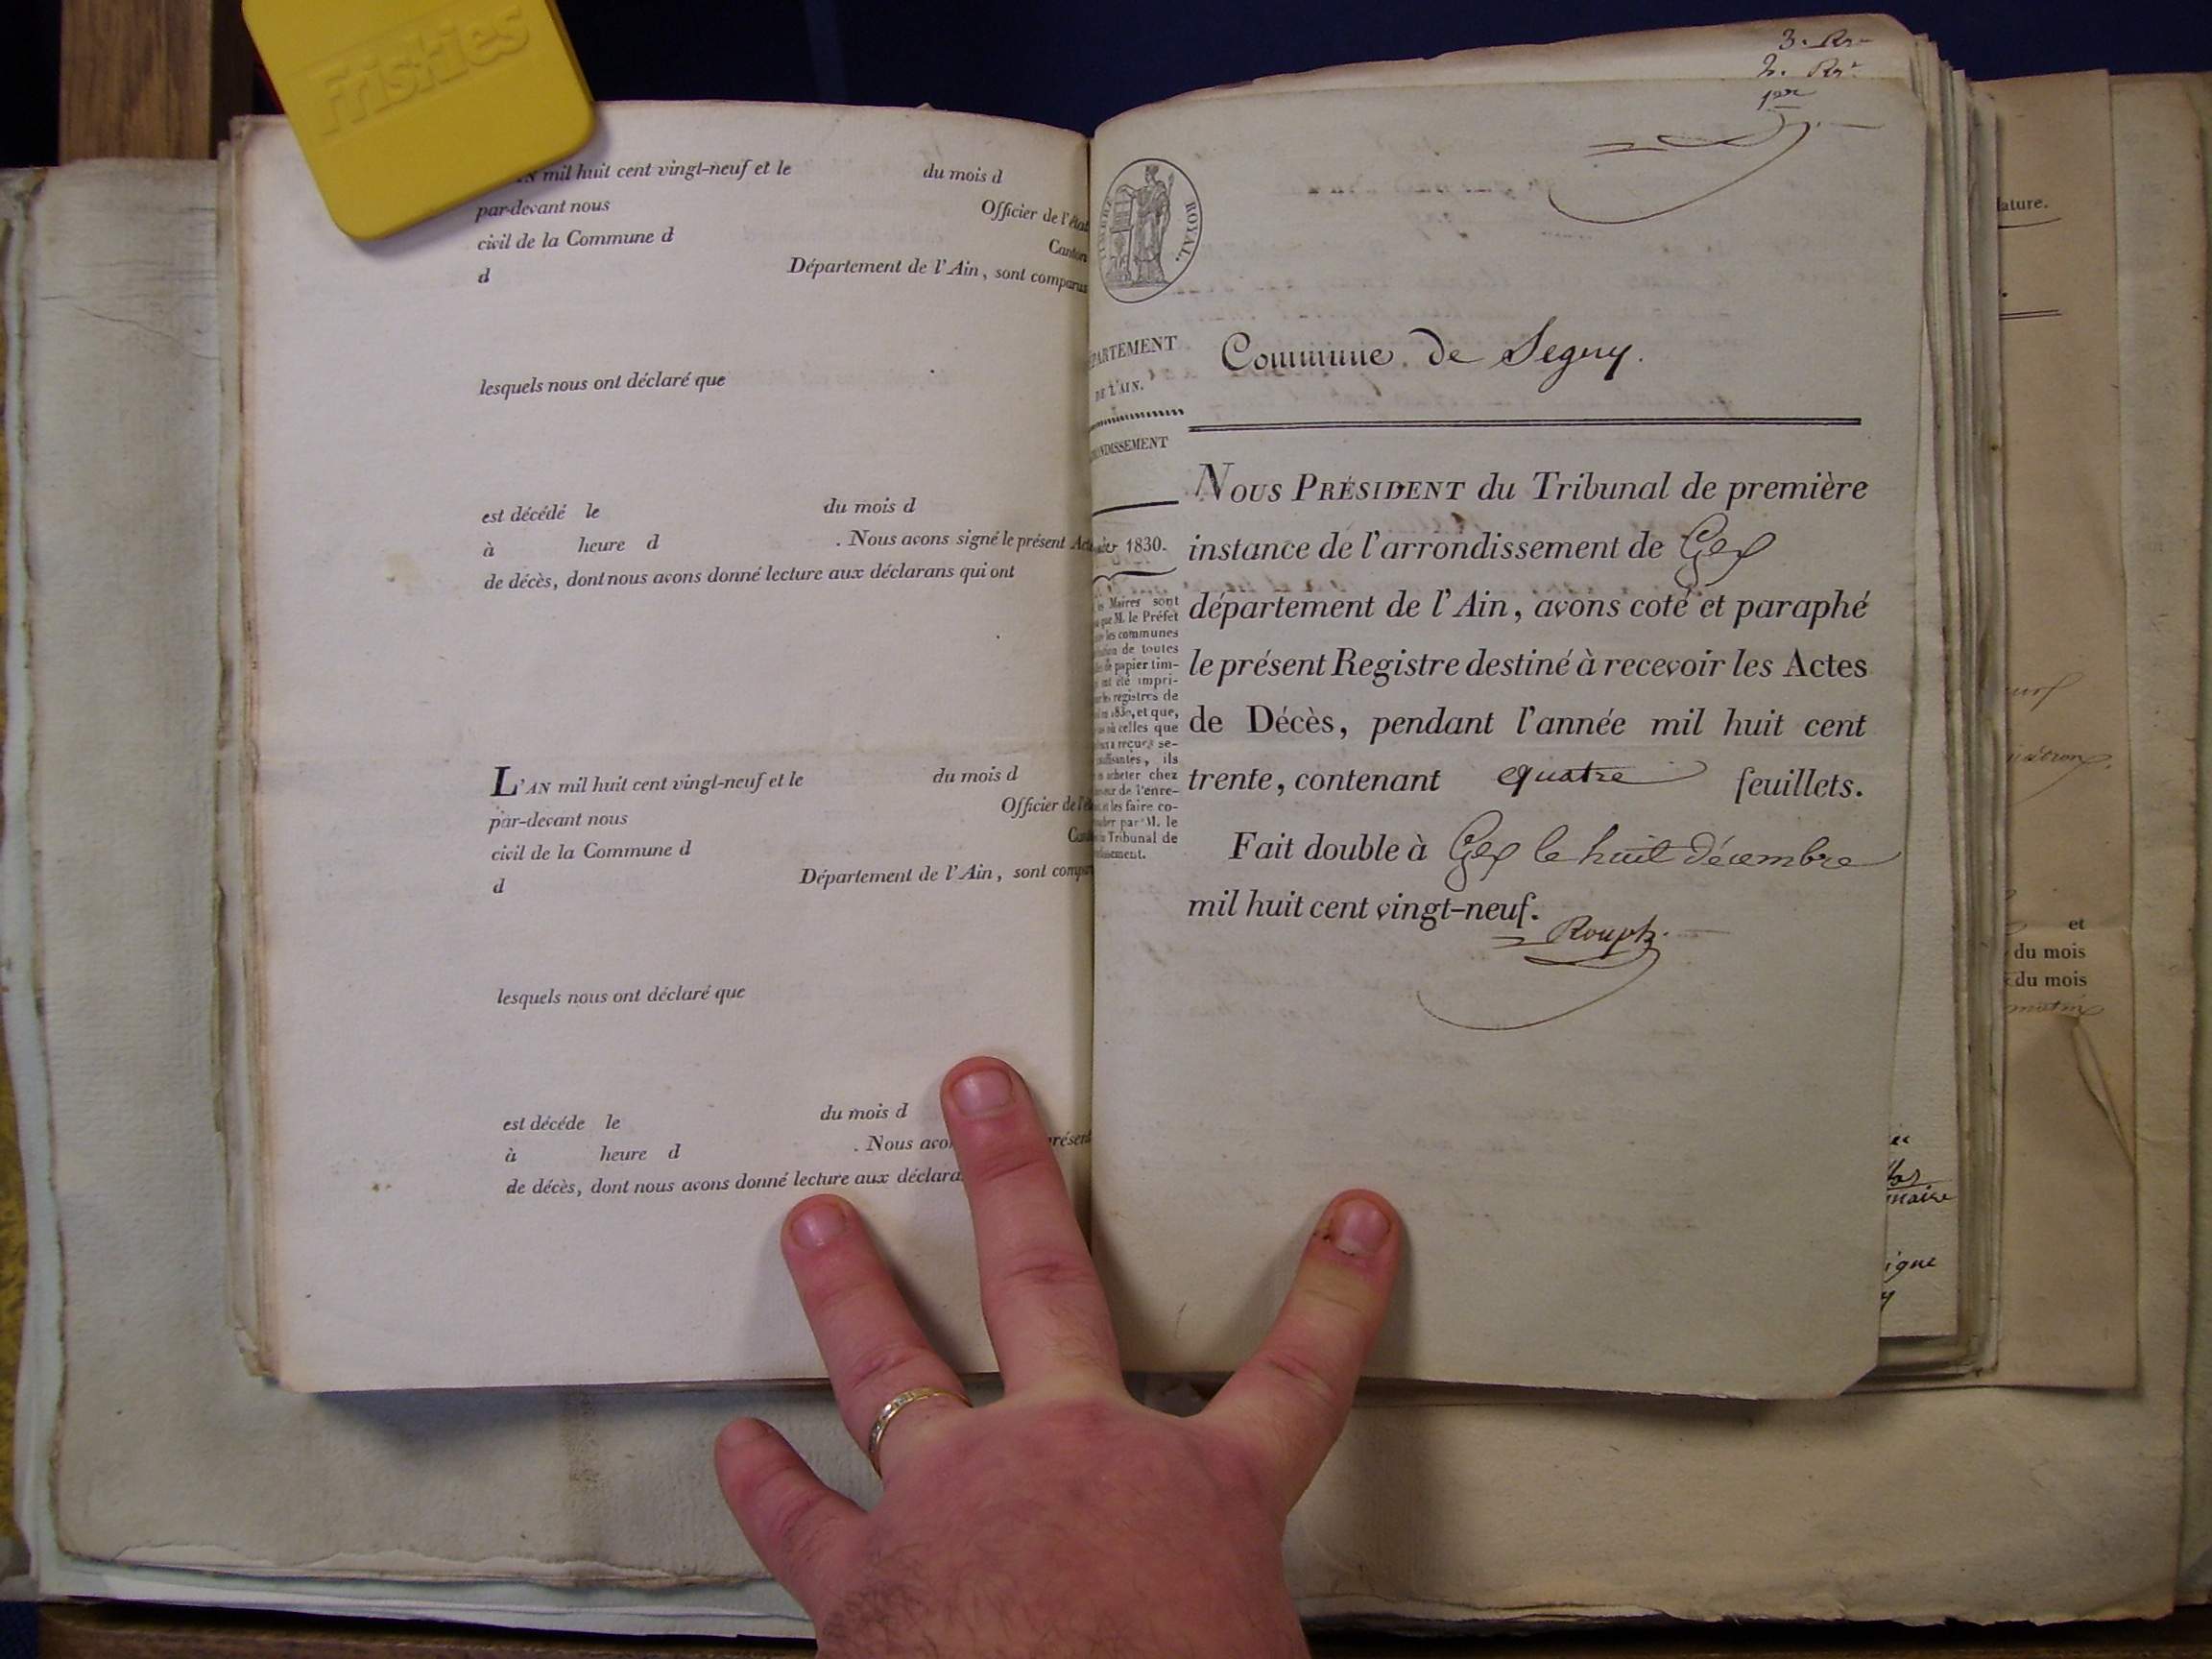 Friskies
mil huit cent vingt-neuf et le du mois d
par-devant nous Officier de l'état
civil de la Commune d Canton
d Département de l'Ain, sont comparus
lesquels nous ont déclaré que
est décédé le du mois d
à heure d . Nous avons signé le présent Acte
de décès, dont nous avons donné lecture aux déclarans qui ont
L'AN mil huit cent vingt-neuf et le du mois d
par-devant nous Officier de l'
civil de la Commune d
d Département de l'Ain, sont
lesquels nous ont déclaré que
est décéde le du mois d
à heure d . Nous
de décès, dont nous avons donné lecture aux
3.
2.
1er
TIMBRE ROYAL.
PARTEMENT
DE L'AIN.
NDISSEMENT
1830.
Maires sont
que M. le Préfet
les communes
de toutes
papier tim-
été impri-
registres de
1830, et que,
celles que
reçues se-
, ils
acheter chez
de l'enre-
les faire co-
par M. le
Tribunal de
Commune de Segny.
NOUS PRÉSIDENT du Tribunal de première
instance de l'arrondissement de Gex
département de l'Ain, avons coté et paraphé
le présent Registre destiné à recevoir les Actes
de Décès, pendant l'année mil huit cent
trente, contenant quatre feuillets.
Fait double à Gex le huit décembre
mil huit cent vingt-neuf.
Rouph
lature.
et
du mois
du mois
matin
maire
igne